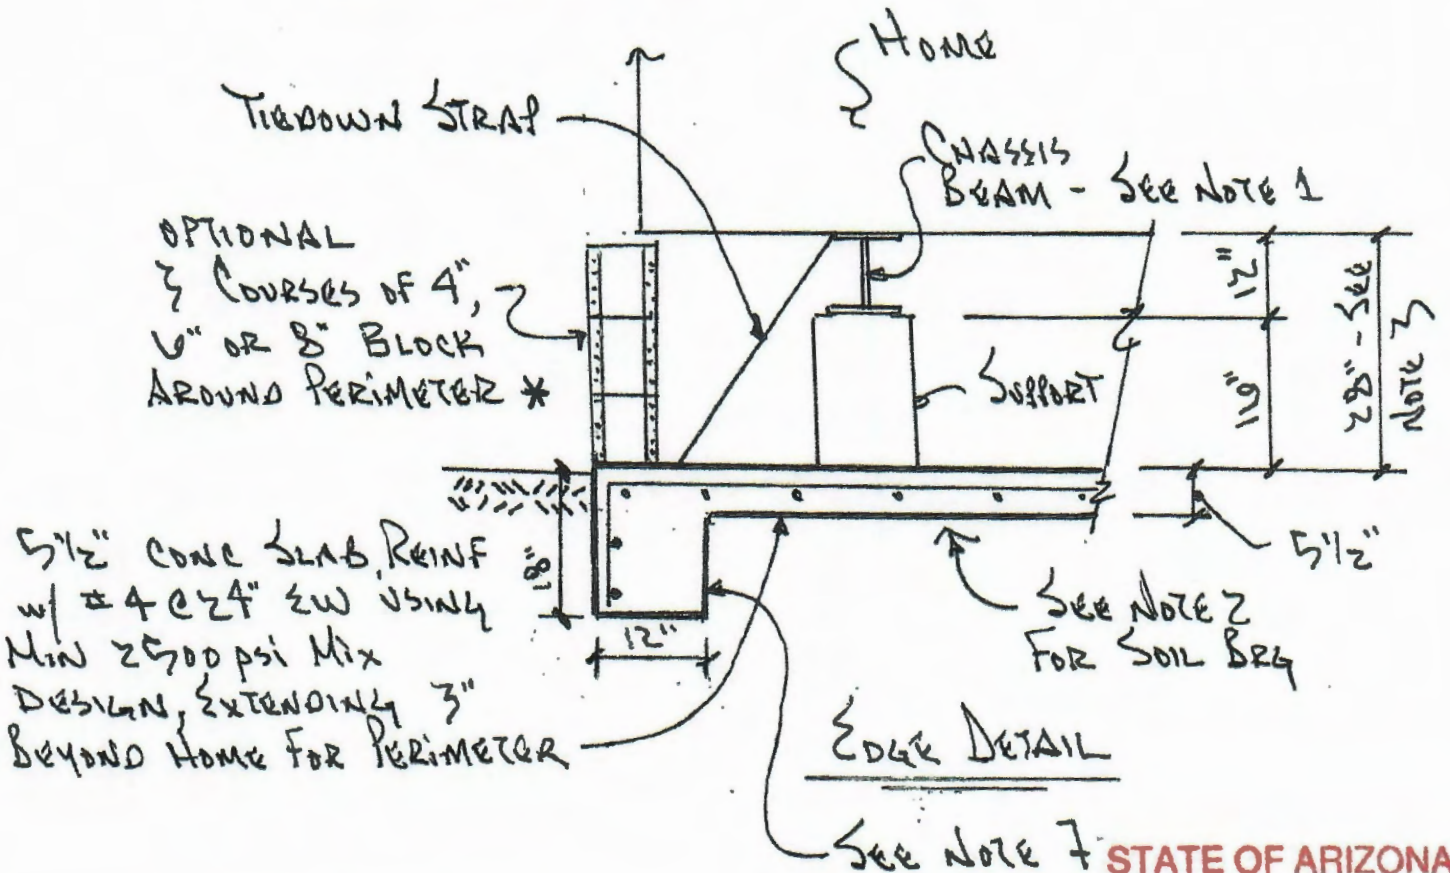 HOME
TIEDOWN STRAP
CHASSIS
BEAM - SEE NOTE 1
OPTIONAL
3 COURSES OF 4",
6" OR 8" BLOCK
AROUND PERIMETER *
12"
28" - SEE
NOTE 3
SUPPORT
16"
5 1/2" CONC SLAB, REINF
w/ #4 @ 24" EW USING
MIN 2500 psi MIX
DESIGN, EXTENDING 3"
BEYOND HOME FOR PERIMETER
18"
12"
5 1/2"
SEE NOTE 2
FOR SOIL BRG
EDGE DETAIL
SEE NOTE 7
STATE OF ARIZONA